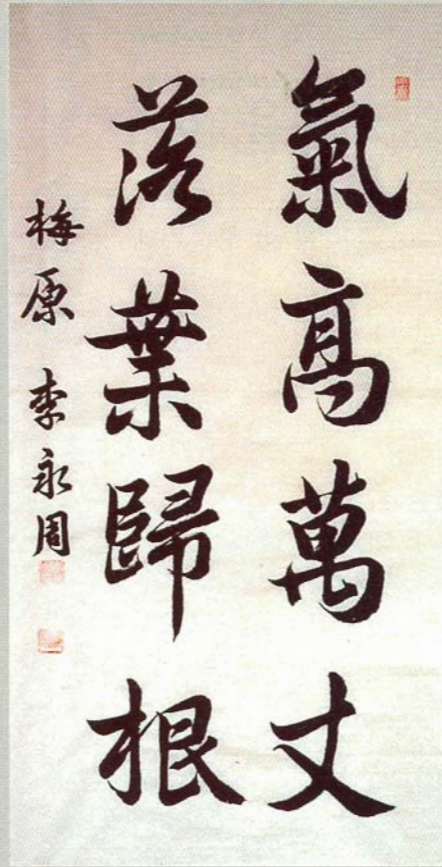 氣高萬丈
落葉歸根
梅原 李永周